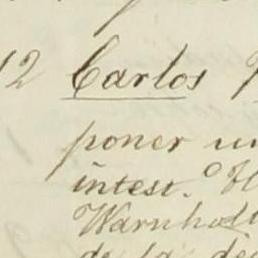 12 Carlos
poner un
intest.º
Warnholt
de la de